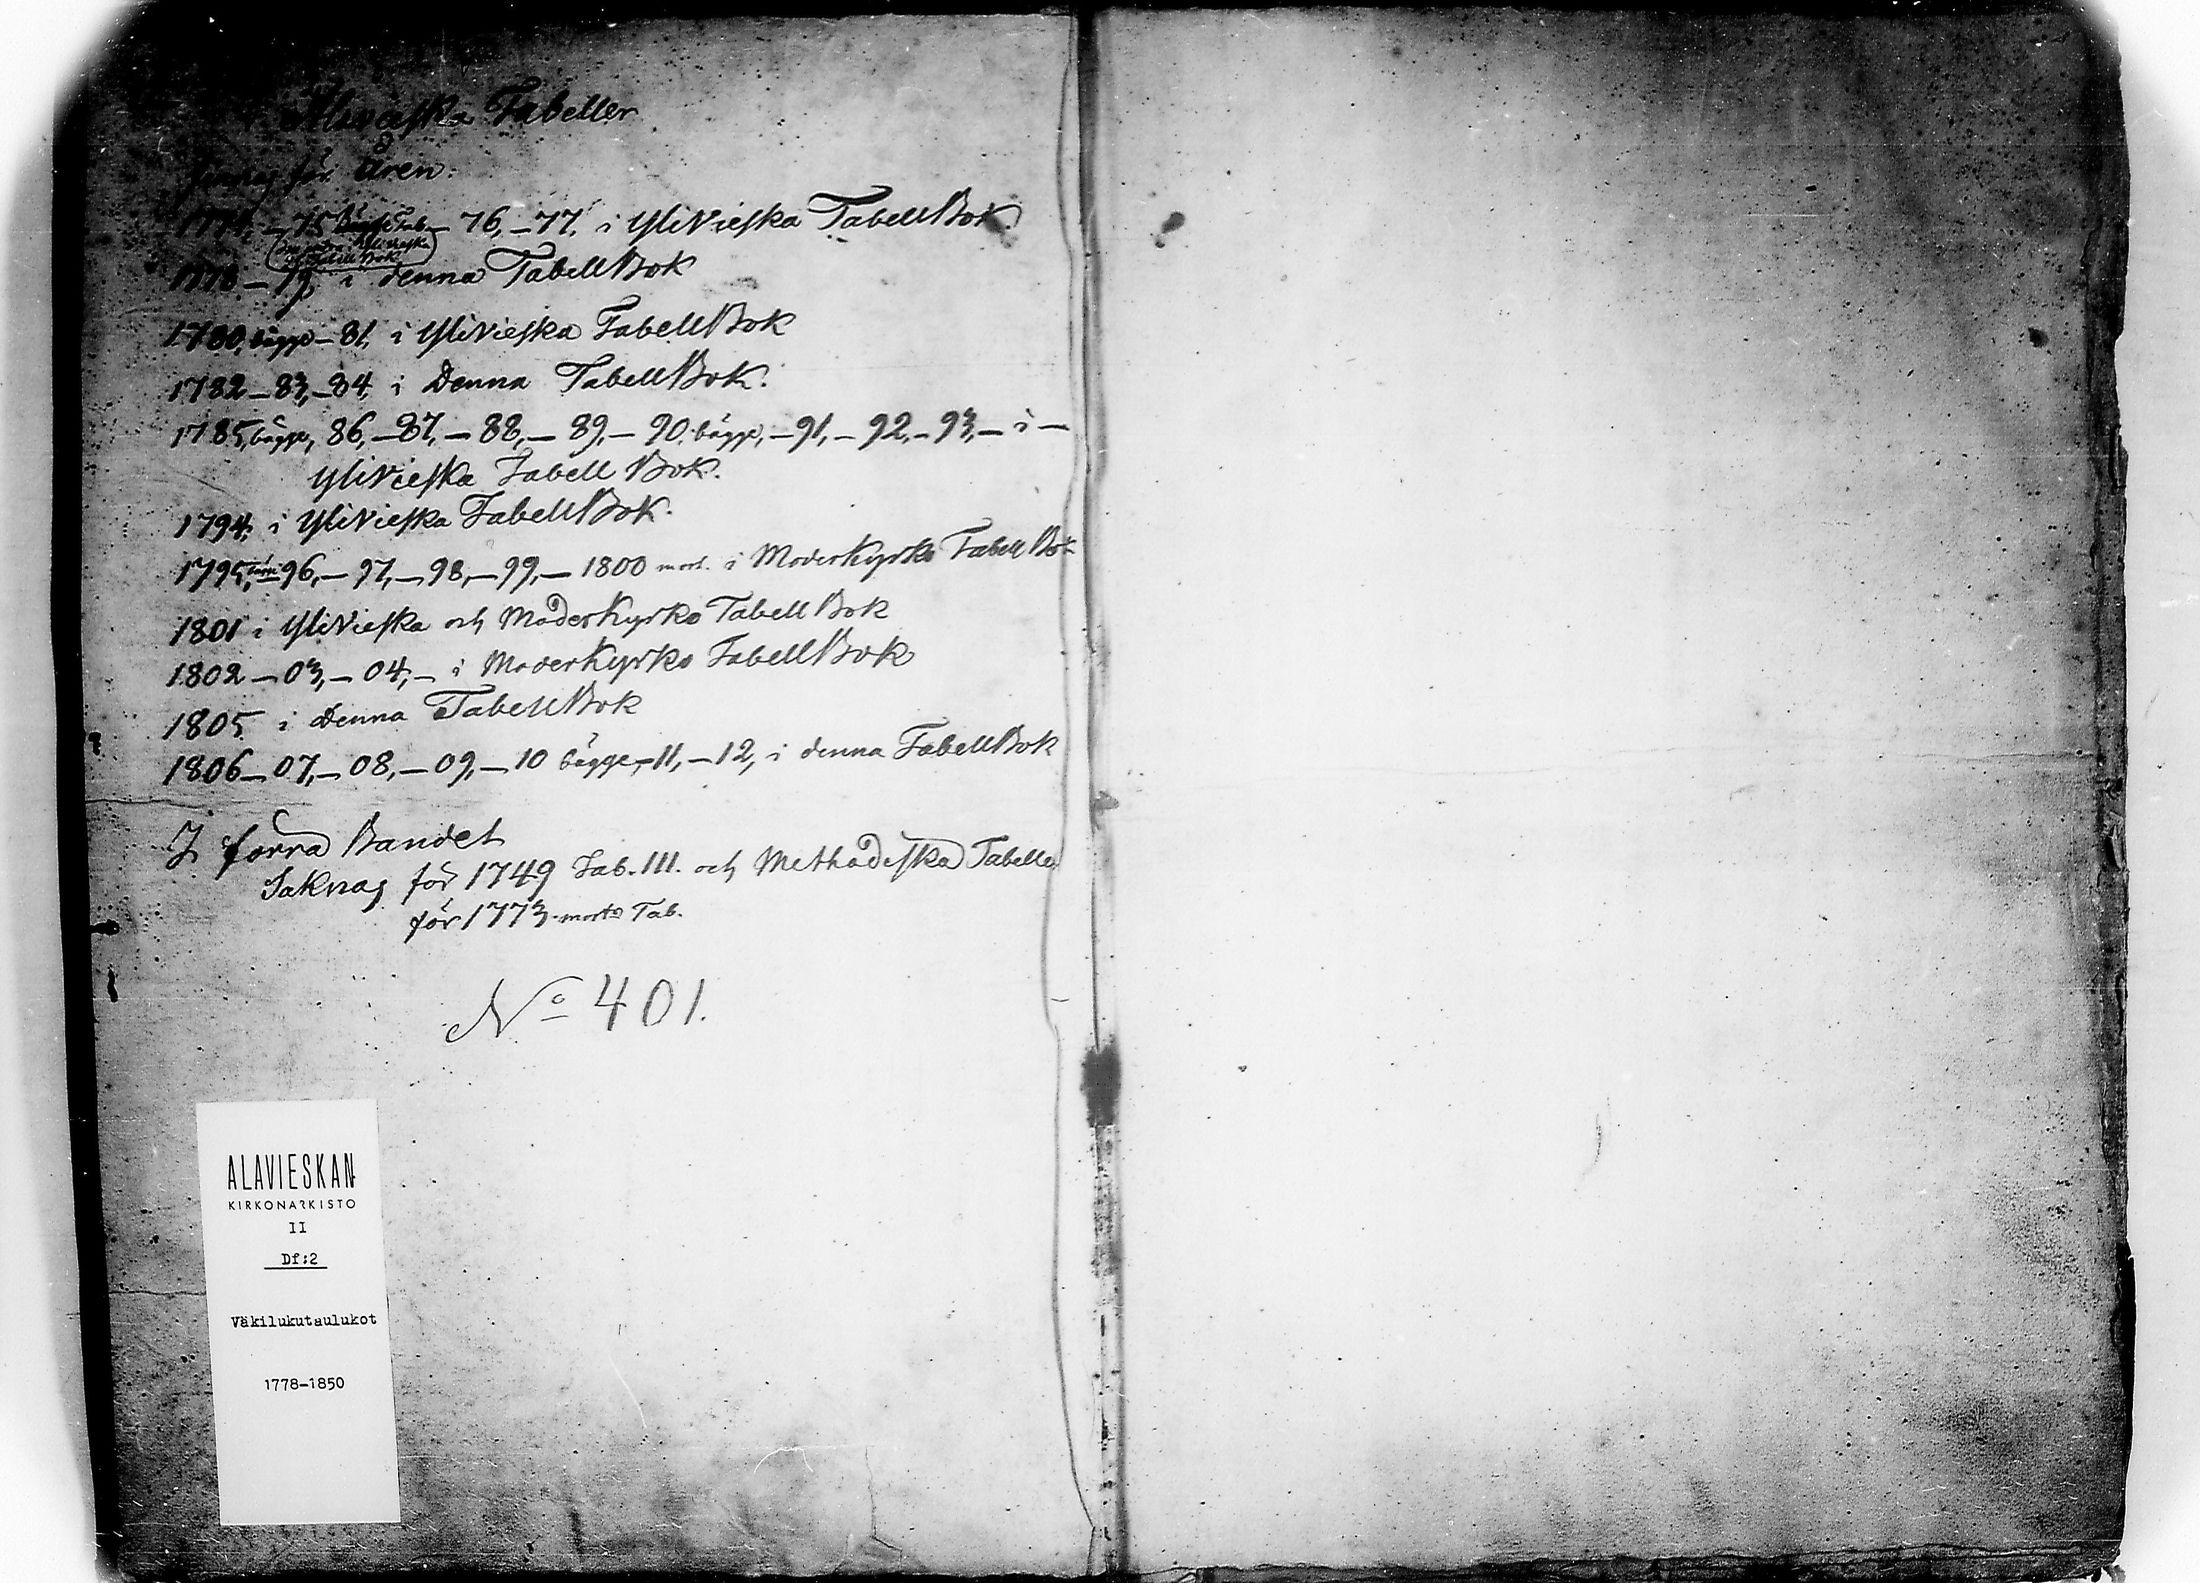 Alavieska Tabeller
finnas för Åren:
1774, – 75 bägge Tab – 76, – 77, i YliVieska TabellBok
YliVieska
TabellBok
1778 – 79, i denna TabellBok
1780, bägge – 81, i YliVieska TabellBok
1782 – 83, – 84, i Denna TabellBok.
1785, bägge, 86, – 87, – 88, – 89, – 90, bägge, – 91, – 92, – 93, – i –
YliVieska Tabell Bok.
1794, i YliVieska TabellBok.
1795, 96, – 97, – 98, – 99, – 1800 mort. i ModerKyrko Tabell Bok
1801 i YliVieska och ModerKyrko Tabell Bok
1802 – 03, – 04, – i ModerKyrko TabellBok
1805 i Denna TabellBok
1806 – 07, – 08, – 09, – 10 bägge, – 11, – 12, i denna TabellBok
I förra Bandet
Saknas för 1749 Tab. III. och Methodiska Tabeller
för 1773 mort Tab.
No 401.
ALAVIESKAN
KIRKONARKISTO
II
Df:2
Väkilukutaulukot
1778-1850